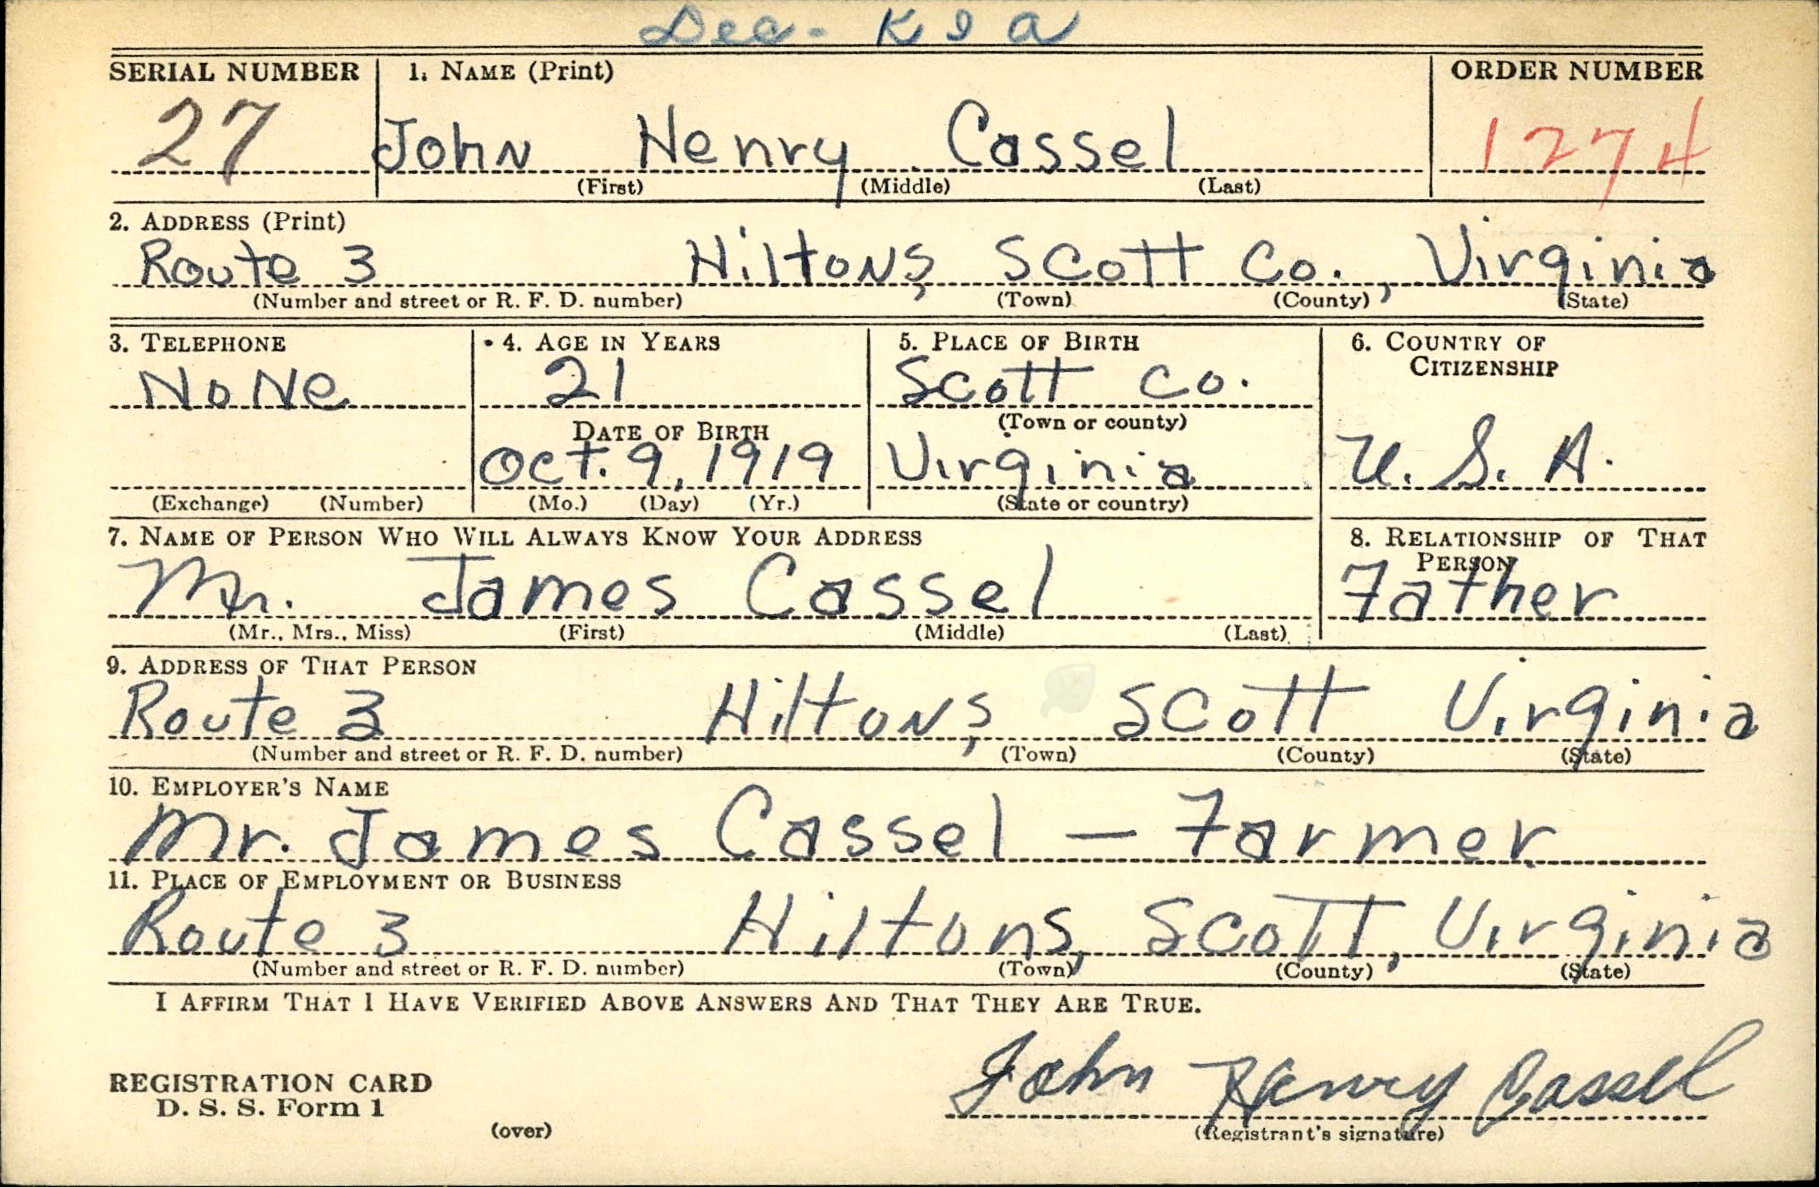 Dec - K I A
SERIAL NUMBER 1. NAME (Print) ORDER NUMBER
27 John Henry Cassel 1274
(First) (Middle) (Last)
2. ADDRESS (Print)
Route 3 Hiltons, Scott Co., Virginia
(Number and street or R. F. D. number) (Town) (County) (State)
3. TELEPHONE 4. AGE IN YEARS 5. PLACE OF BIRTH 6. COUNTRY OF
CITIZENSHIP
None 21 Scott Co.
DATE OF BIRTH (Town or county)
Oct. 9, 1919 Virginia U. S. A.
(Exchange) (Number) (Mo.) (Day) (Yr.) (State or country)
7. NAME OF PERSON WHO WILL ALWAYS KNOW YOUR ADDRESS 8. RELATIONSHIP OF THAT
PERSON
Mr. James Cassel Father
(Mr., Mrs., Miss) (First) (Middle) (Last)
9. ADDRESS OF THAT PERSON
Route 3 Hiltons, Scott Virginia
(Number and street or R. F. D. number) (Town) (County) (State)
10. EMPLOYER'S NAME
Mr. James Cassel — Farmer
11. PLACE OF EMPLOYMENT OR BUSINESS
Route 3 Hiltons, Scott, Virginia
(Number and street or R. F. D. number) (Town) (County) (State)
I AFFIRM THAT I HAVE VERIFIED ABOVE ANSWERS AND THAT THEY ARE TRUE.
John Henry Cassel
REGISTRATION CARD
D. S. S. Form 1
(over) (Registrant's signature)